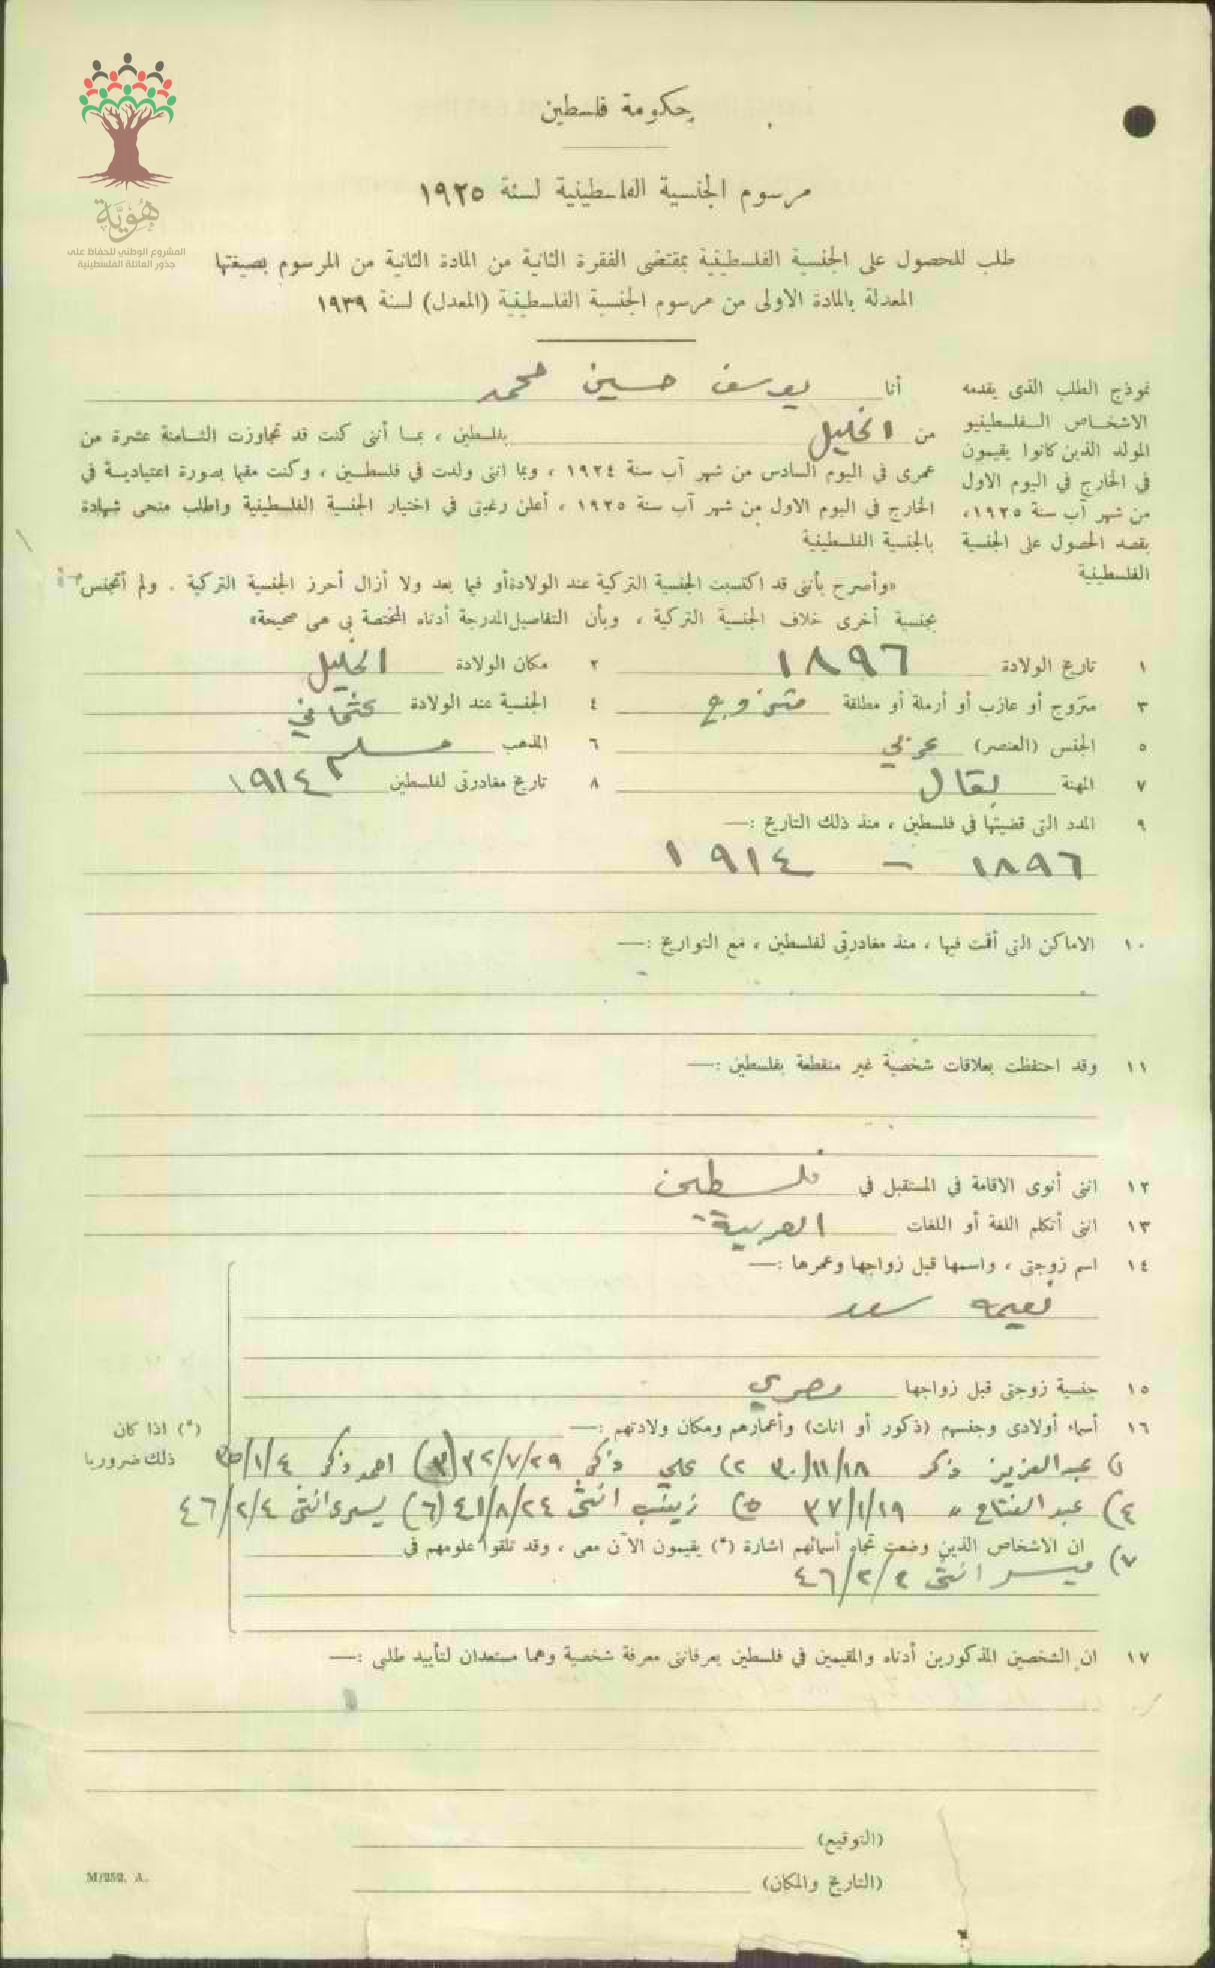 هُوِيَّة
المشروع الوطني للحفاظ على
جذور العائلة الفلسطينية
حكومة فلسطين
مرسوم الجنسية الفلسطينية لسنة ١٩٢٥
طلب للحصول على الجنسية الفلسطينية بمقتضى الفقرة الثانية من المادة الثانية من المرسوم بصيغتها
المعدلة بالمادة الاولى من مرسوم الجنسية الفلسطينية (المعدل) لسنة ١٩٣٩
نموذج الطلب الذى يقدمه
الاشخاص الفلسطينيو
المولد الذين كانوا يقيمون
في الخارج في اليوم الاول
من شهر آب سنة ١٩٢٥،
بقصد الحصول على الجنسية
الفلسطينية
أنا يوسف حسين محمد
من الخليل بفلسطين ، بما أننى كنت قد تجاوزت الثامنة عشرة من
عمرى في اليوم السادس من شهر آب سنة ١٩٢٤ ، وبما اننى ولدت في فلسطين ، وكنت مقيما بصورة اعتيادية في
الخارج في اليوم الاول من شهر آب سنة ١٩٢٥ ، أعلن رغبتى في اختيار الجنسية الفلسطينية واطلب منحى شهادة
بالجنسية الفلسطينية
«وأصرح بأننى قد اكتسبت الجنسية التركية عند الولادة أو فيما بعد ولا أزال أحرز الجنسية التركية . ولم أتجنس
بجنسية أخرى خلاف الجنسية التركية ، وبأن التفاصيل المدرجة أدناه المختصة بى هى صحيحة»
١ تاريخ الولادة ١٨٩٦ ٢ مكان الولادة الخليل
٣ متزوج أو عازب أو أرملة أو مطلقة متزوج ٤ الجنسية عند الولادة عثماني
٥ الجنس (العنصر) عربي ٦ المذهب مسلم
٧ المهنة بقال ٨ تاريخ مغادرتى لفلسطين ١٩١٤
٩ المدد التى قضيتها في فلسطين ، منذ ذلك التاريخ :—
١٨٩٦ - ١٩١٤
١٠ الاماكن التى أقمت فيها ، منذ مغادرتى لفلسطين ، مع التواريخ :—
١١ وقد احتفظت بعلاقات شخصية غير منقطعة بفلسطين :—
١٢ اننى أنوى الاقامة في المستقبل في فلسطين
١٣ اننى أتكلم اللغة أو اللغات العربية
١٤ اسم زوجتى ، واسمها قبل زواجها وعمرها :—
نعيمه سعد
١٥ جنسية زوجتى قبل زواجها مصري
١٦ أسماء أولادى وجنسهم (ذكور أو اناث) وأعمارهم ومكان ولادتهم :—
(*) اذا كان
ذلك ضروريا
١) عبدالعزيز ذكر ٣٠/١١/١٨ ٢) علي ذكر ٣٢/٧/٢٩ (٣) احمد ذكر ٣٥/١/٤
٤) عبد الفتاح " ٣٧/١/١٩ ٥) زينب انثى ٤١/٨/٢٤ (٦) يسرى انثى ٤٦/٢/٤
ان الاشخاص الذين وضعت تجاه أسمائهم اشارة (*) يقيمون الآن معى ، وقد تلقوا علومهم في
٧) ميسر انثى ٤٦/٢/٢
١٧ ان الشخصين المذكورين أدناه والمقيمين في فلسطين يعرفاننى معرفة شخصية وهما مستعدان لتأييد طلبى :—
(التوقيع)
(التاريخ والمكان)
M/252. A.